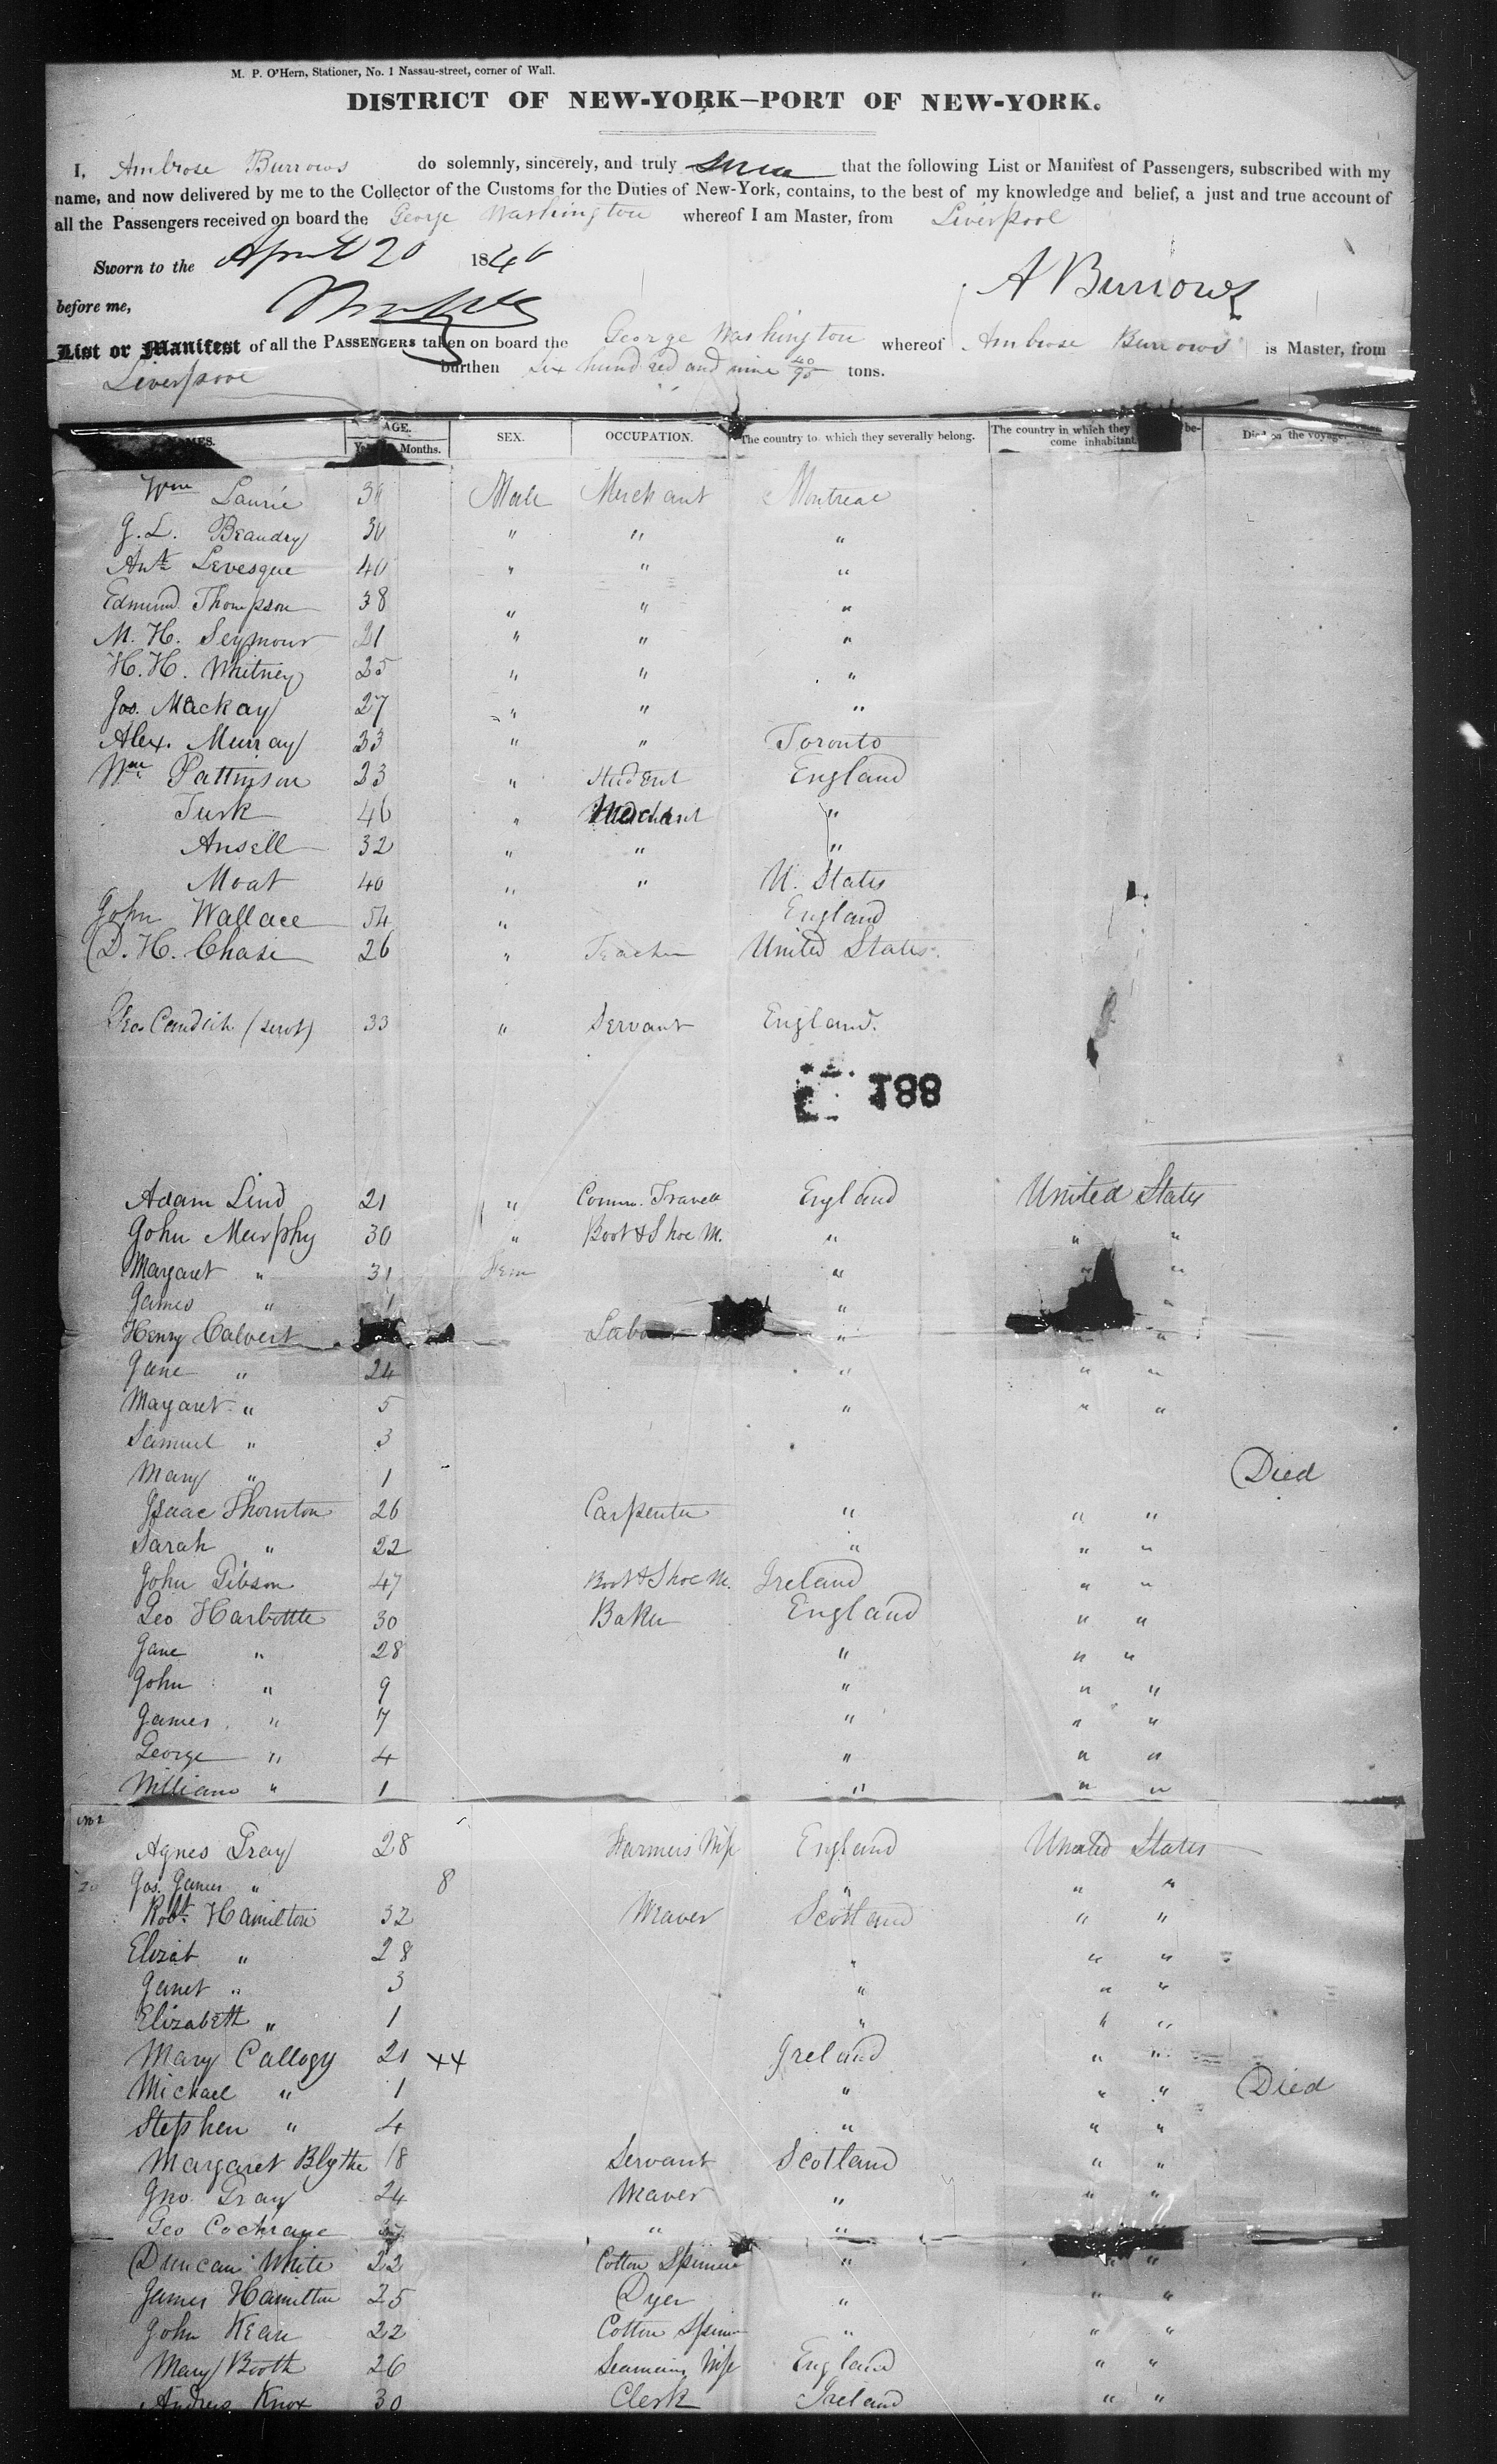 M. P. O'Hern, Stationer, No. 1 Nassau-street, corner of Wall.
DISTRICT OF NEW-YORK—PORT OF NEW-YORK.
I, Ambrose Burrows do solemnly, sincerely, and truly swear that the following List or Manifest of Passengers, subscribed with my
name, and now delivered by me to the Collector of the Customs for the Duties of New-York, contains, to the best of my knowledge and belief, a just and true account of
all the Passengers received on board the George Washington whereof I am Master, from Liverpool
Sworn to the April 20 1846
A Burrows
before me,
List or Manifest of all the PASSENGERS taken on board the George Washington whereof Ambrose Burrows is Master, from
Liverpool burthen six hundred and nine 40/95 tons.
NAMES. AGE. Years Months. SEX. OCCUPATION. The country to which they severally belong. The country in which they be-come inhabitant. Died on the voyage.
Wm Laurie 36 Male Merchant Montreal
G. L. Beaudry 30 " " "
Ant. Levesque 40 " " "
Edmund Thompson 38 " " "
M. H. Seymour 21 " " "
H. H. Whitney 25 " " "
Jos. Mackay 27 " " "
Alex. Murray 33 " " Toronto
Wm Pattinson 23 " Student England
Turk 46 " Merchant "
Ansell 32 " " "
Moat 40 " " U. States
John Wallace 54 " England
D. H. Chase 26 " Teacher United States.
Geo Candish (servt) 33 " Servant England.
188
Adam Lind 21 " Comm. Travell England United States
John Murphy 30 " Boot & Shoe M. " " "
Margaret " 31 Fem " " "
James " 1 "
Henry Calvert Labo " "
Jane " 24 " " "
Margaret " 5 " " "
Samuel " 3
Mary " 1 Died
Isaac Thornton 26 Carpenter " " "
Sarah " 22 " " "
John Gibson 47 Boot & Shoe M. Ireland " "
Geo Harbottle 30 Baker England " "
Jane " 28 " " "
John " 9 " " "
James " 7 " " "
George " 4 " " "
William " 1 " " "
Agnes Gray 28 Farmers Wife England United States
Jos. James " 8 " " "
Robt. Hamilton 32 Weaver Scotland " "
Elizab. " 28 " " "
Janet " 3 " " "
Elizabeth " 1 " " "
Mary Callogy 21 XX Ireland " "
Michael " 1 " " " Died
Stephen " 4 " " "
Margaret Blythe 18 Servant Scotland " "
Jno. Gray 24 Weaver " " "
Geo Cochrane " "
Duncan White 22 Cotton Spinner " " "
James Hamilton 25 Dyer " " "
John Kean 22 Cotton Spinner " " "
Mary Booth 26 Seamans Wife England " "
Andrew Knox 30 Clerk Ireland " "